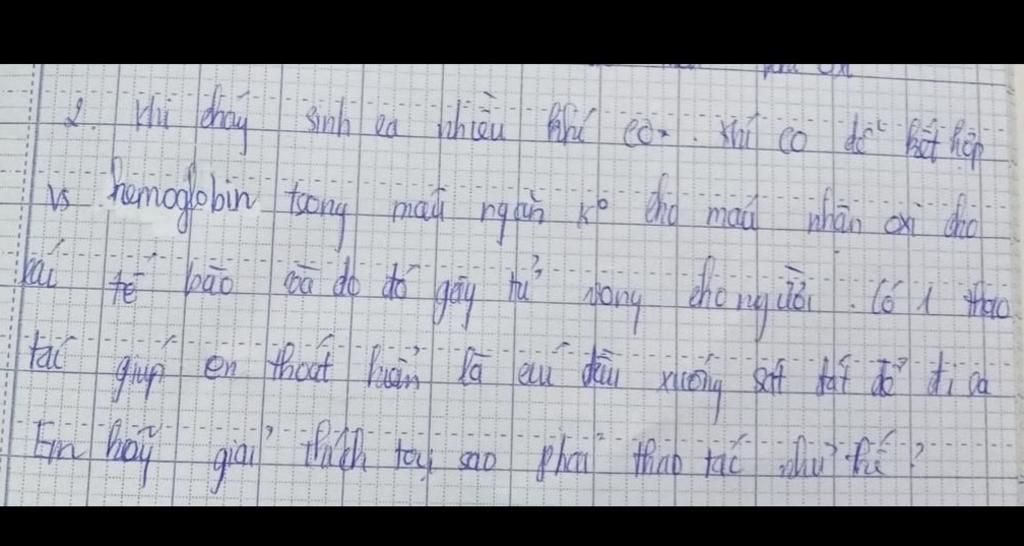 2. Khi cháy sinh ra nhiều khí CO. Khí CO dễ kết hợp
vs hemoglobin trong máu ngăn ko cho máu nhận oxi cho
tế bào và do đó gây tử vong cho người. Có 1 thao
tác giúp em thoát hiểm là cúi đầu xuống sát đất để đi ra
Em hãy giải thích tại sao phải thao tác như thế?